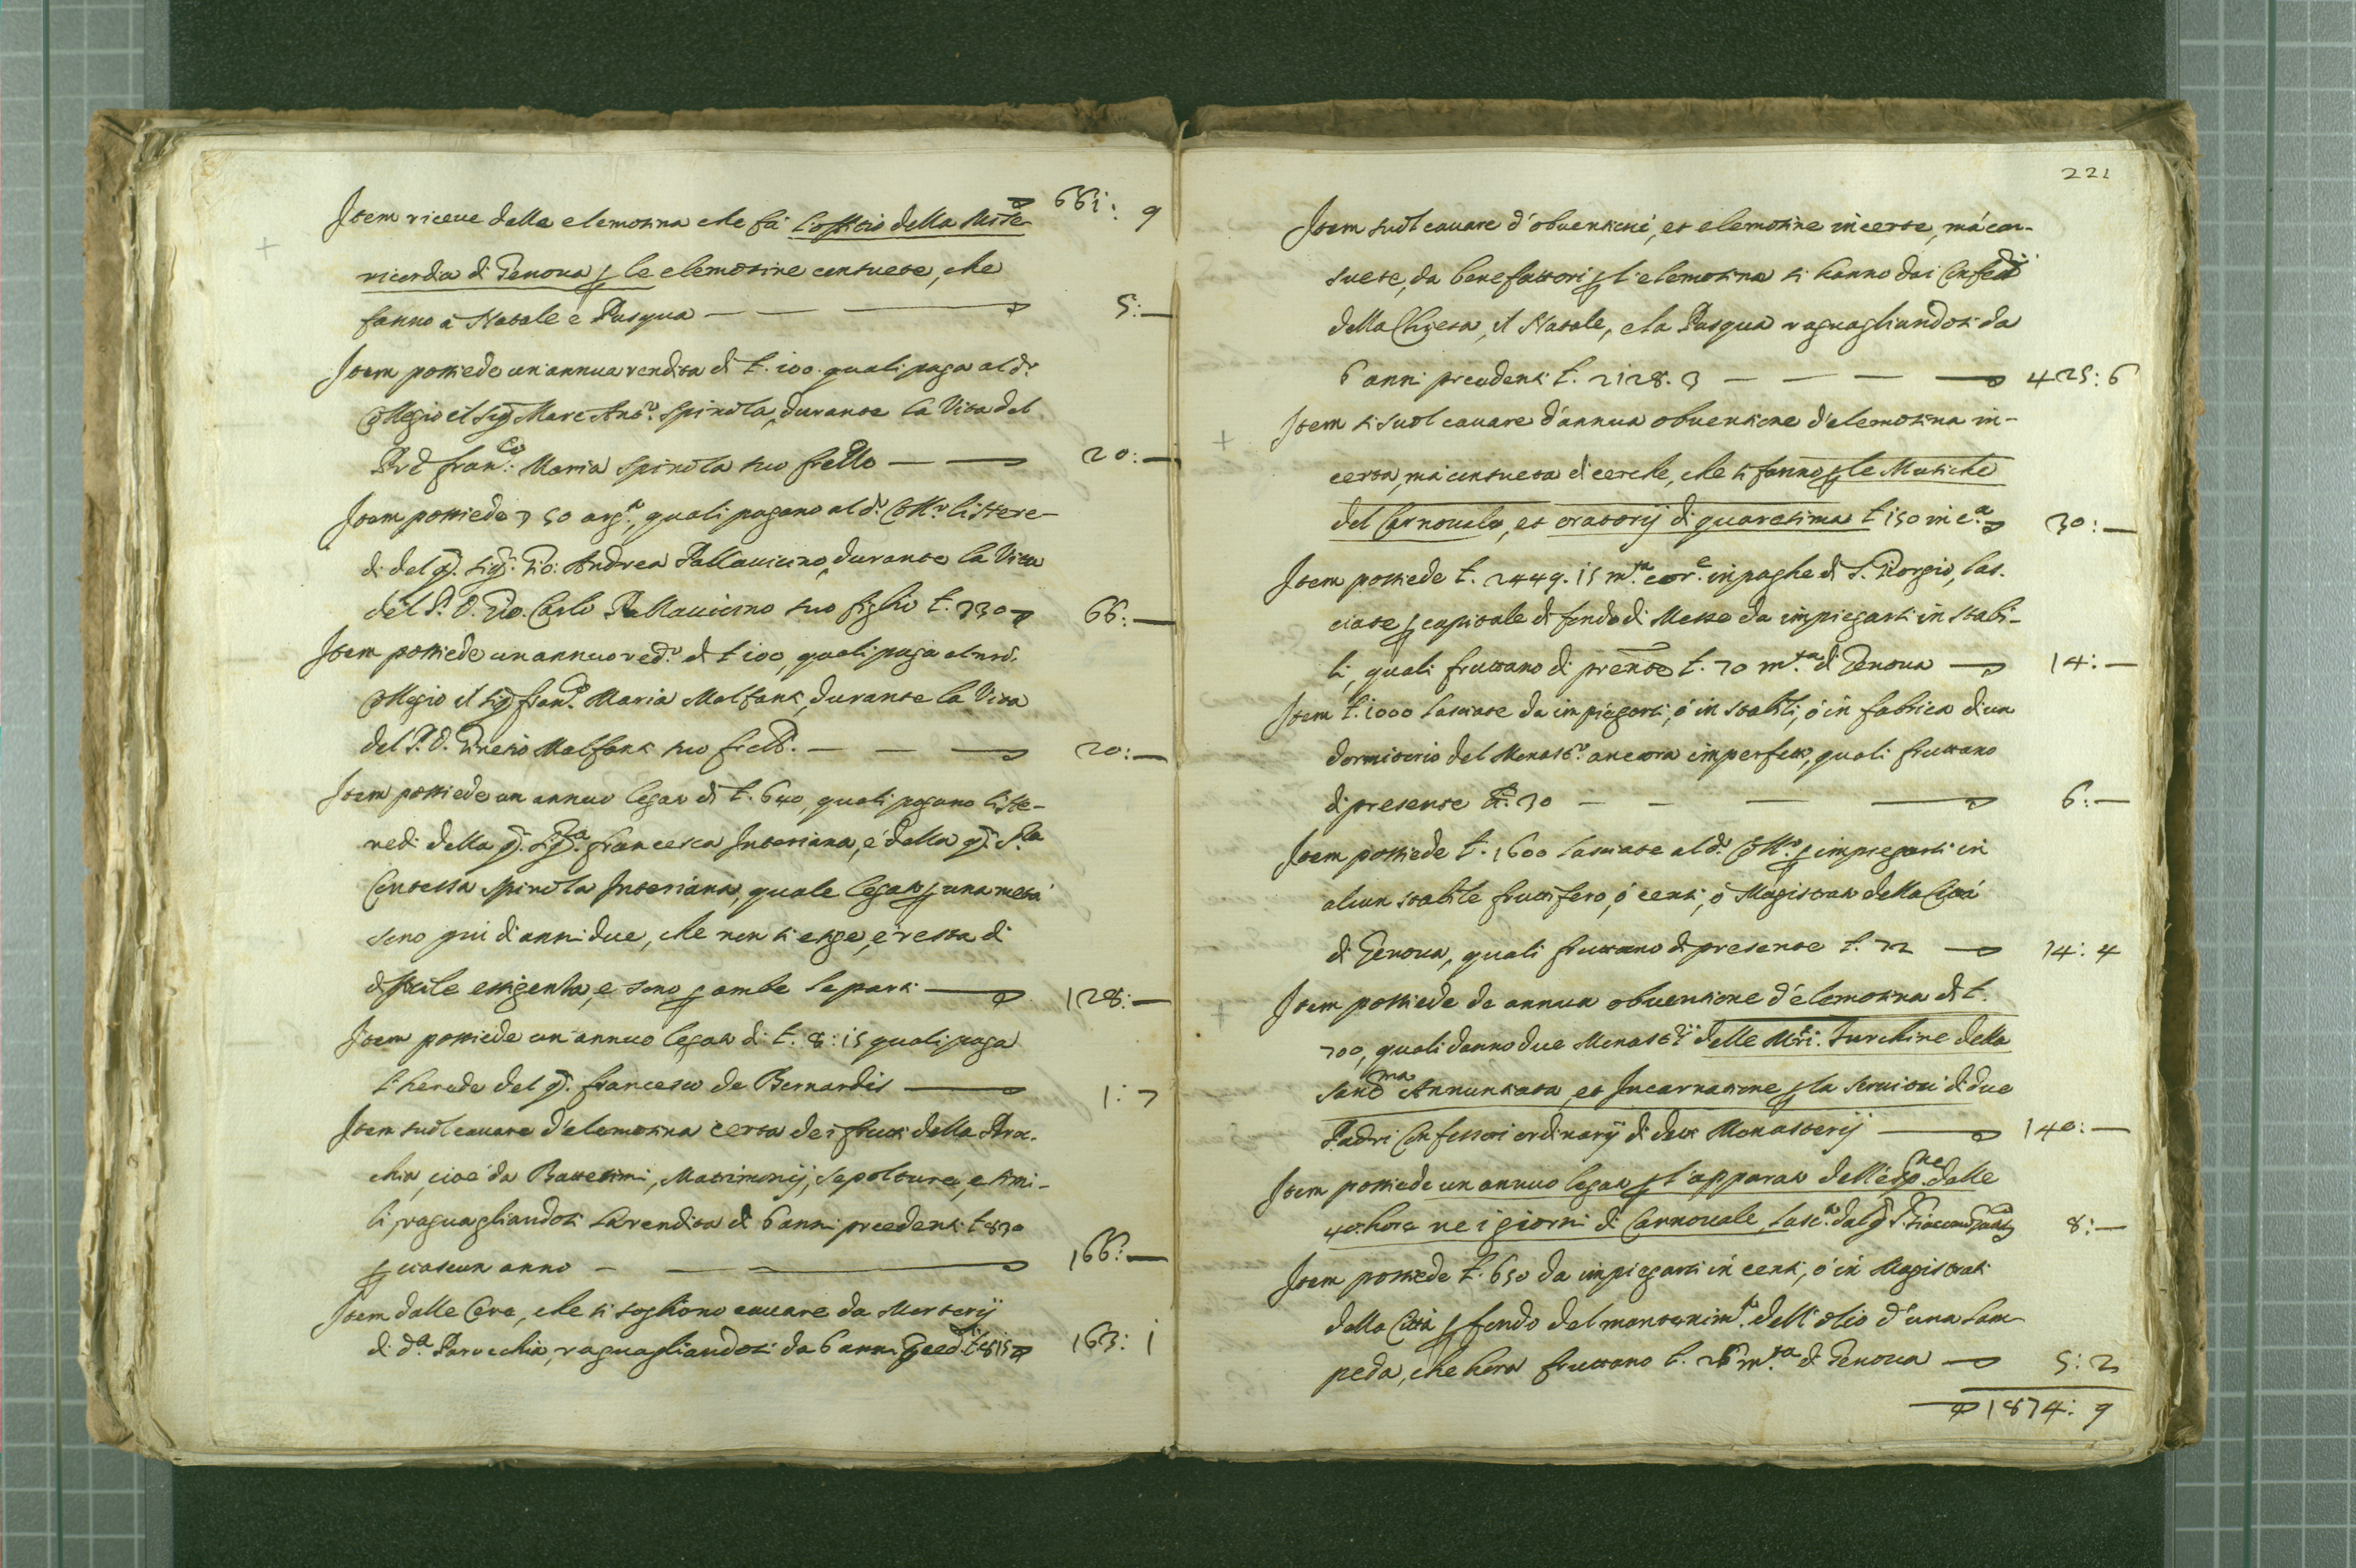 661: 9
Item riceve della elemosina che fà l'offitio della Mise-
ricordia di Genova p le elemosine consuete, che
fanno à Natale è Pasqua — 5:—
Item possiede un'annua rendita di £. 100. quali paga al d.º
Collegio il Sig Marc Ant.º Spinola, durante la Vita del
Pre Fran.co Maria Spinola suo frello — 20:—
Item possiede 50 arg.to, quali pagano al d.º Coll.º li here-
di del q. Sig. Gio: Andrea Pallavicino, durante la Vita
del P. D. Gio. Carlo Pallavicino suo figlio £. 330 66:—
Item possiede un annuo red.º di £ 100, quali paga al nro
Collegio il Sig Fran.co Maria Malfanti, durante la Vita
del P. D. Malfanti suo frello. — 20:—
Item possiede un annuo legato di £. 640, quali pagano li he-
redi della q. Sig.ra Francesca Interiana, è della q. S.ra
Contessa Spinola Interiana, quale legato p una metà
sono più di anni due, che non si esige, è resta di
difficile essigenza, e sono p ambe le parti — 128:—
Item possiede un annuo legato di £. 8:15 quali paga
l'herede del q. Francesco de Bernardis — 1:7
Item suol cavare d'elemosina certa dei frutti della Paro-
chia, cioè da Battesimi, Matrimonij, Sepolture, e simi-
li, raguagliandosi la rendita di 6 anni precedenti £ 830
p ciascun anno — 166:—
Item dalle Cere, che si sogliono cavare da Mortorij
di d.a Parochia, raguagliandosi da 6 anni preced.ti £ 815 163: 1
221
Item suol cavare d'obventioni, et elemosine incerte, mà con-
suete, da benefattori p l'elemosina si hanno dai Confess.i
della Chiesa, il Natale, e la Pasqua raguagliandosi da
6 anni precedenti £. 2128. 3 — 425: 6
Item si suol cavare d'annua obventione d'elemosina in-
certa, mà consueta di cerche, che si fanno p le Musiche
del Carnovale, et oratorij di quaresima £ 150 in c.a 30:—
Item possiede £. 2449. 15 m.ta cor.e in paghe di S. Giorgio, las-
ciate p capitale di fondo di Messe da impiegarsi in stabi-
li, quali fruttano di prente £. 70 m.ta di Genova — 14:—
Item £. 1000 lasciate da impiegarsi, ò in stabili, ò in fabrica di un
dormitorio del Monast.º ancora imperfetto, quali fruttano
di presente £. 30 — 6:—
Item possiede £. 1600 lasciate al d.º Coll.º p impiegarsi in
alcun stabile fruttifero, ò censi, ò Magistrati della Città
di Genova, quali fruttano di presente £. 72 — 14: 4
Item possiede de annua obventione d'elemosina di £.
700, quali danno due Monast.rij delle M.ri Turchine della
Sant.ma Annuntiata, et Incarnatione p la servitù di due
Padri Confessori ordinarij di detti Monasterij — 140:—
Item possiede un annuo legato p l'apparato dell'esp.ne delle
40 hore ne i giorni di Carnovale, lasc.to dal q. 8:—
Item possiede £. 650 da impiegarsi in censi, ò in Magistrati
della Città p fondo del mantenim.to dell'olio d'una lam-
peda, che hora fruttano £. 26 m.ta di Genova — 5: 2
1874: 9